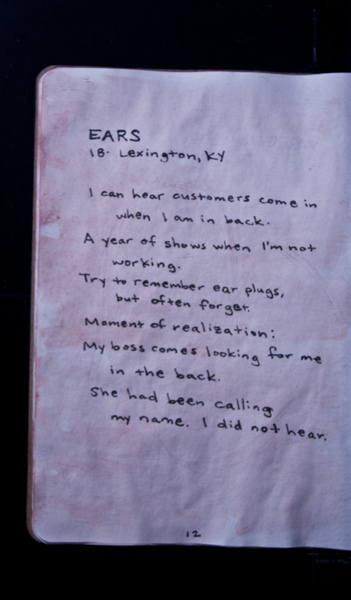 EARS
18. Lexington, KY
I can hear customers come in
when I am in back.
A year of shows when I'm not
working.
Try to remember ear plugs,
but often forget.
Moment of realization:
My boss comes looking for me
in the back.
She had been calling
my name. I did not hear.
12